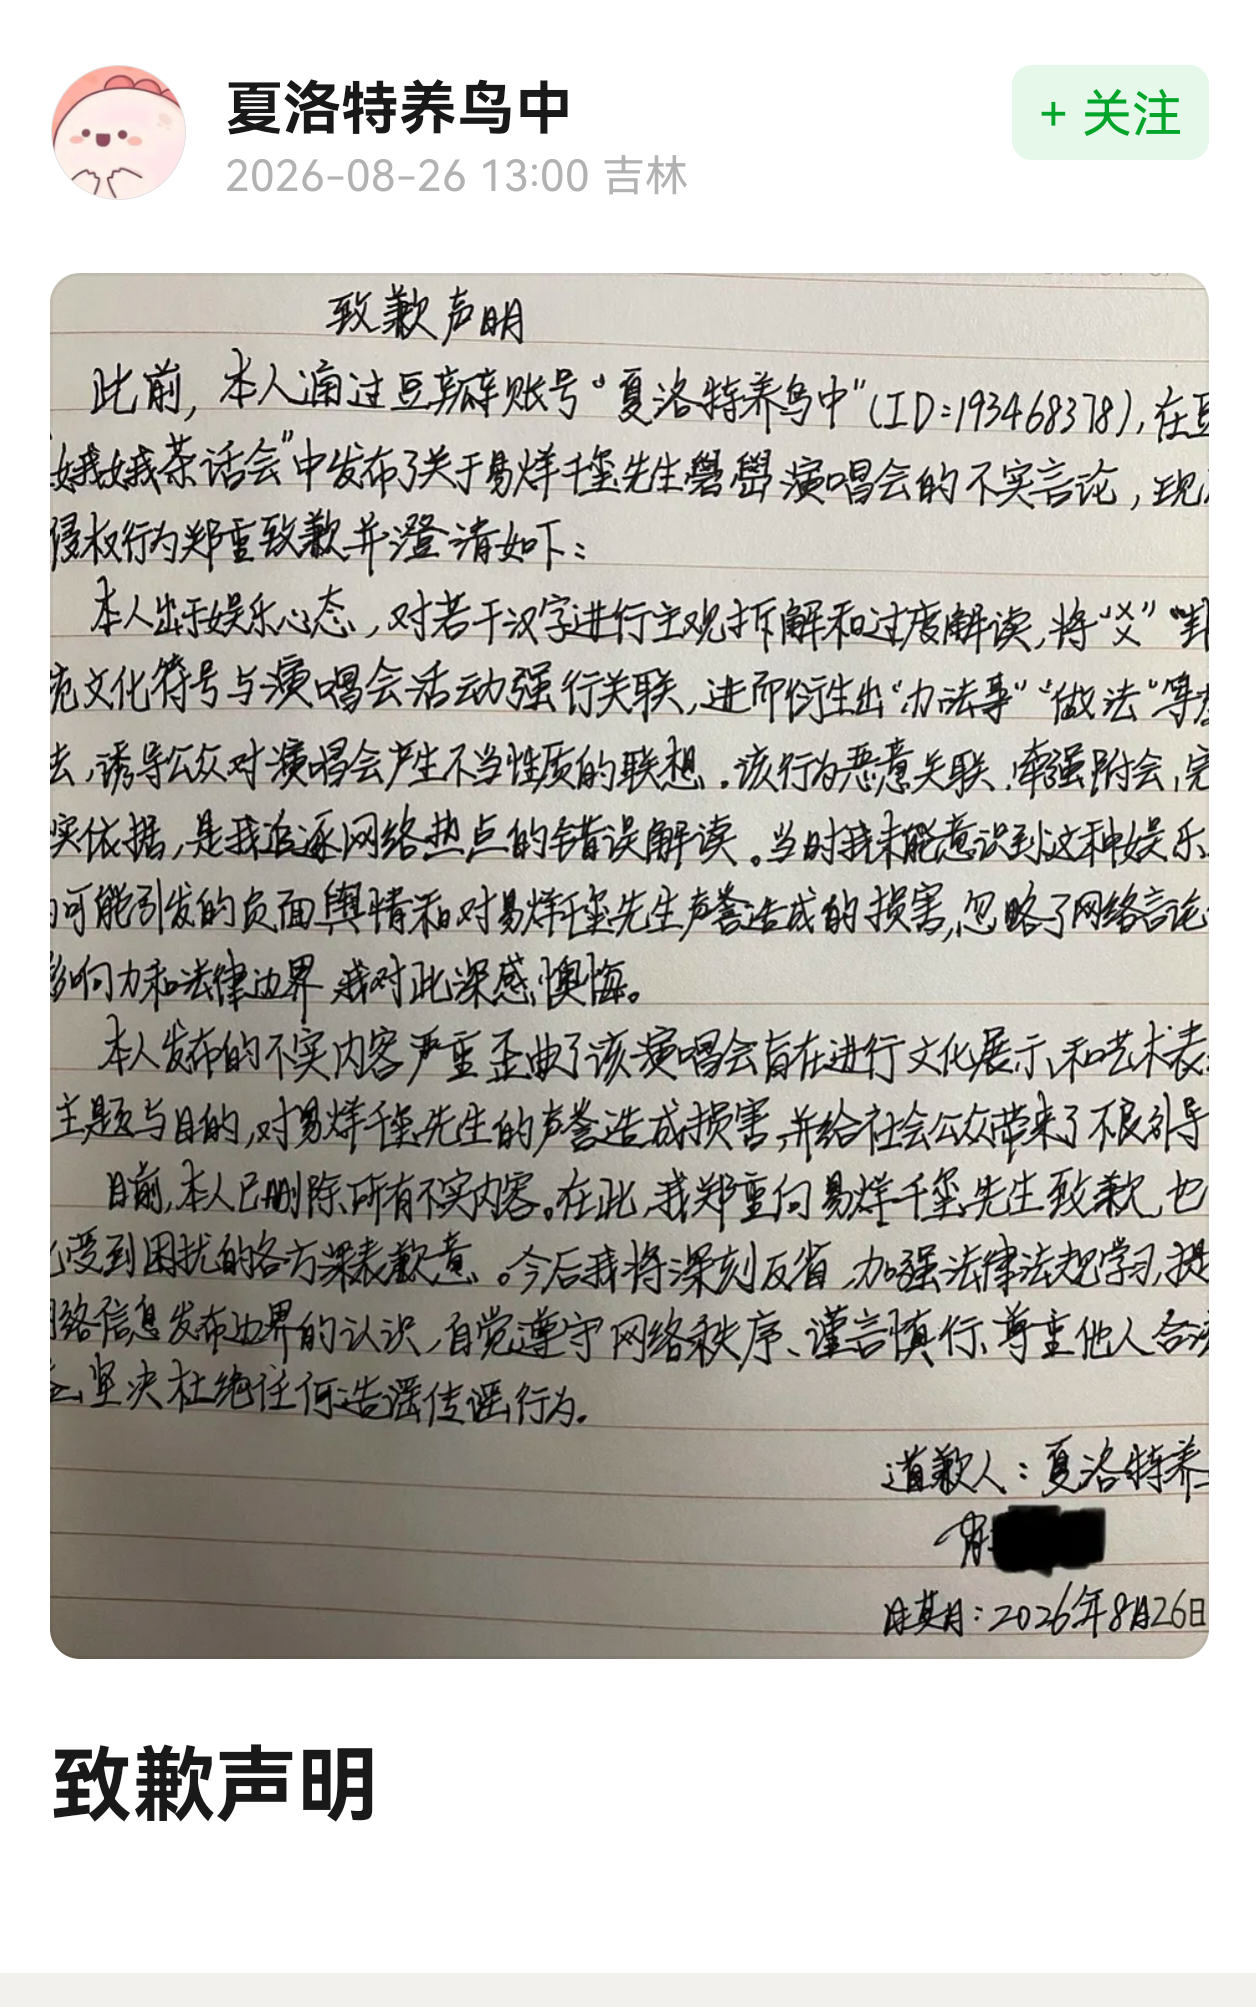 夏洛特养鸟中
2026-08-26 13:00 吉林
+ 关注
致歉声明
此前,本人通过豆瓣账号“夏洛特养鸟中”(ID:193468378),在豆
娥娥茶话会”中发布了关于易烊千玺先生礐嶨演唱会的不实言论,现
侵权行为郑重致歉并澄清如下:
本人出于娱乐心态,对若干汉字进行主观拆解和过度解读,将“爻”“
文化符号与演唱会活动强行关联,进而衍生出“办法事”“做法”等
去,诱导公众对演唱会产生不当性质的联想。该行为恶意关联、牵强附会,完
实依据,是我追逐网络热点的错误解读。当时我未能意识到这种娱乐
可能引发的负面舆情和对易烊千玺先生声誉造成的损害,忽略了网络言论
影响力和法律边界,我对此深感懊悔。
本人发布的不实内容严重歪曲了该演唱会旨在进行文化展示、和艺术表
主题与目的,对易烊千玺先生的声誉造成损害,并给社会公众带来了不良引导
目前,本人已删除所有不实内容。在此,我郑重向易烊千玺先生致歉,也
受到困扰的各方深表歉意。今后我将深刻反省,加强法律法规学习,提
络信息发布边界的认识,自觉遵守网络秩序、谨言慎行、尊重他人合法
坚决杜绝任何造谣传谣行为。
道歉人:夏洛特养
日期:2026年8月26日
致歉声明